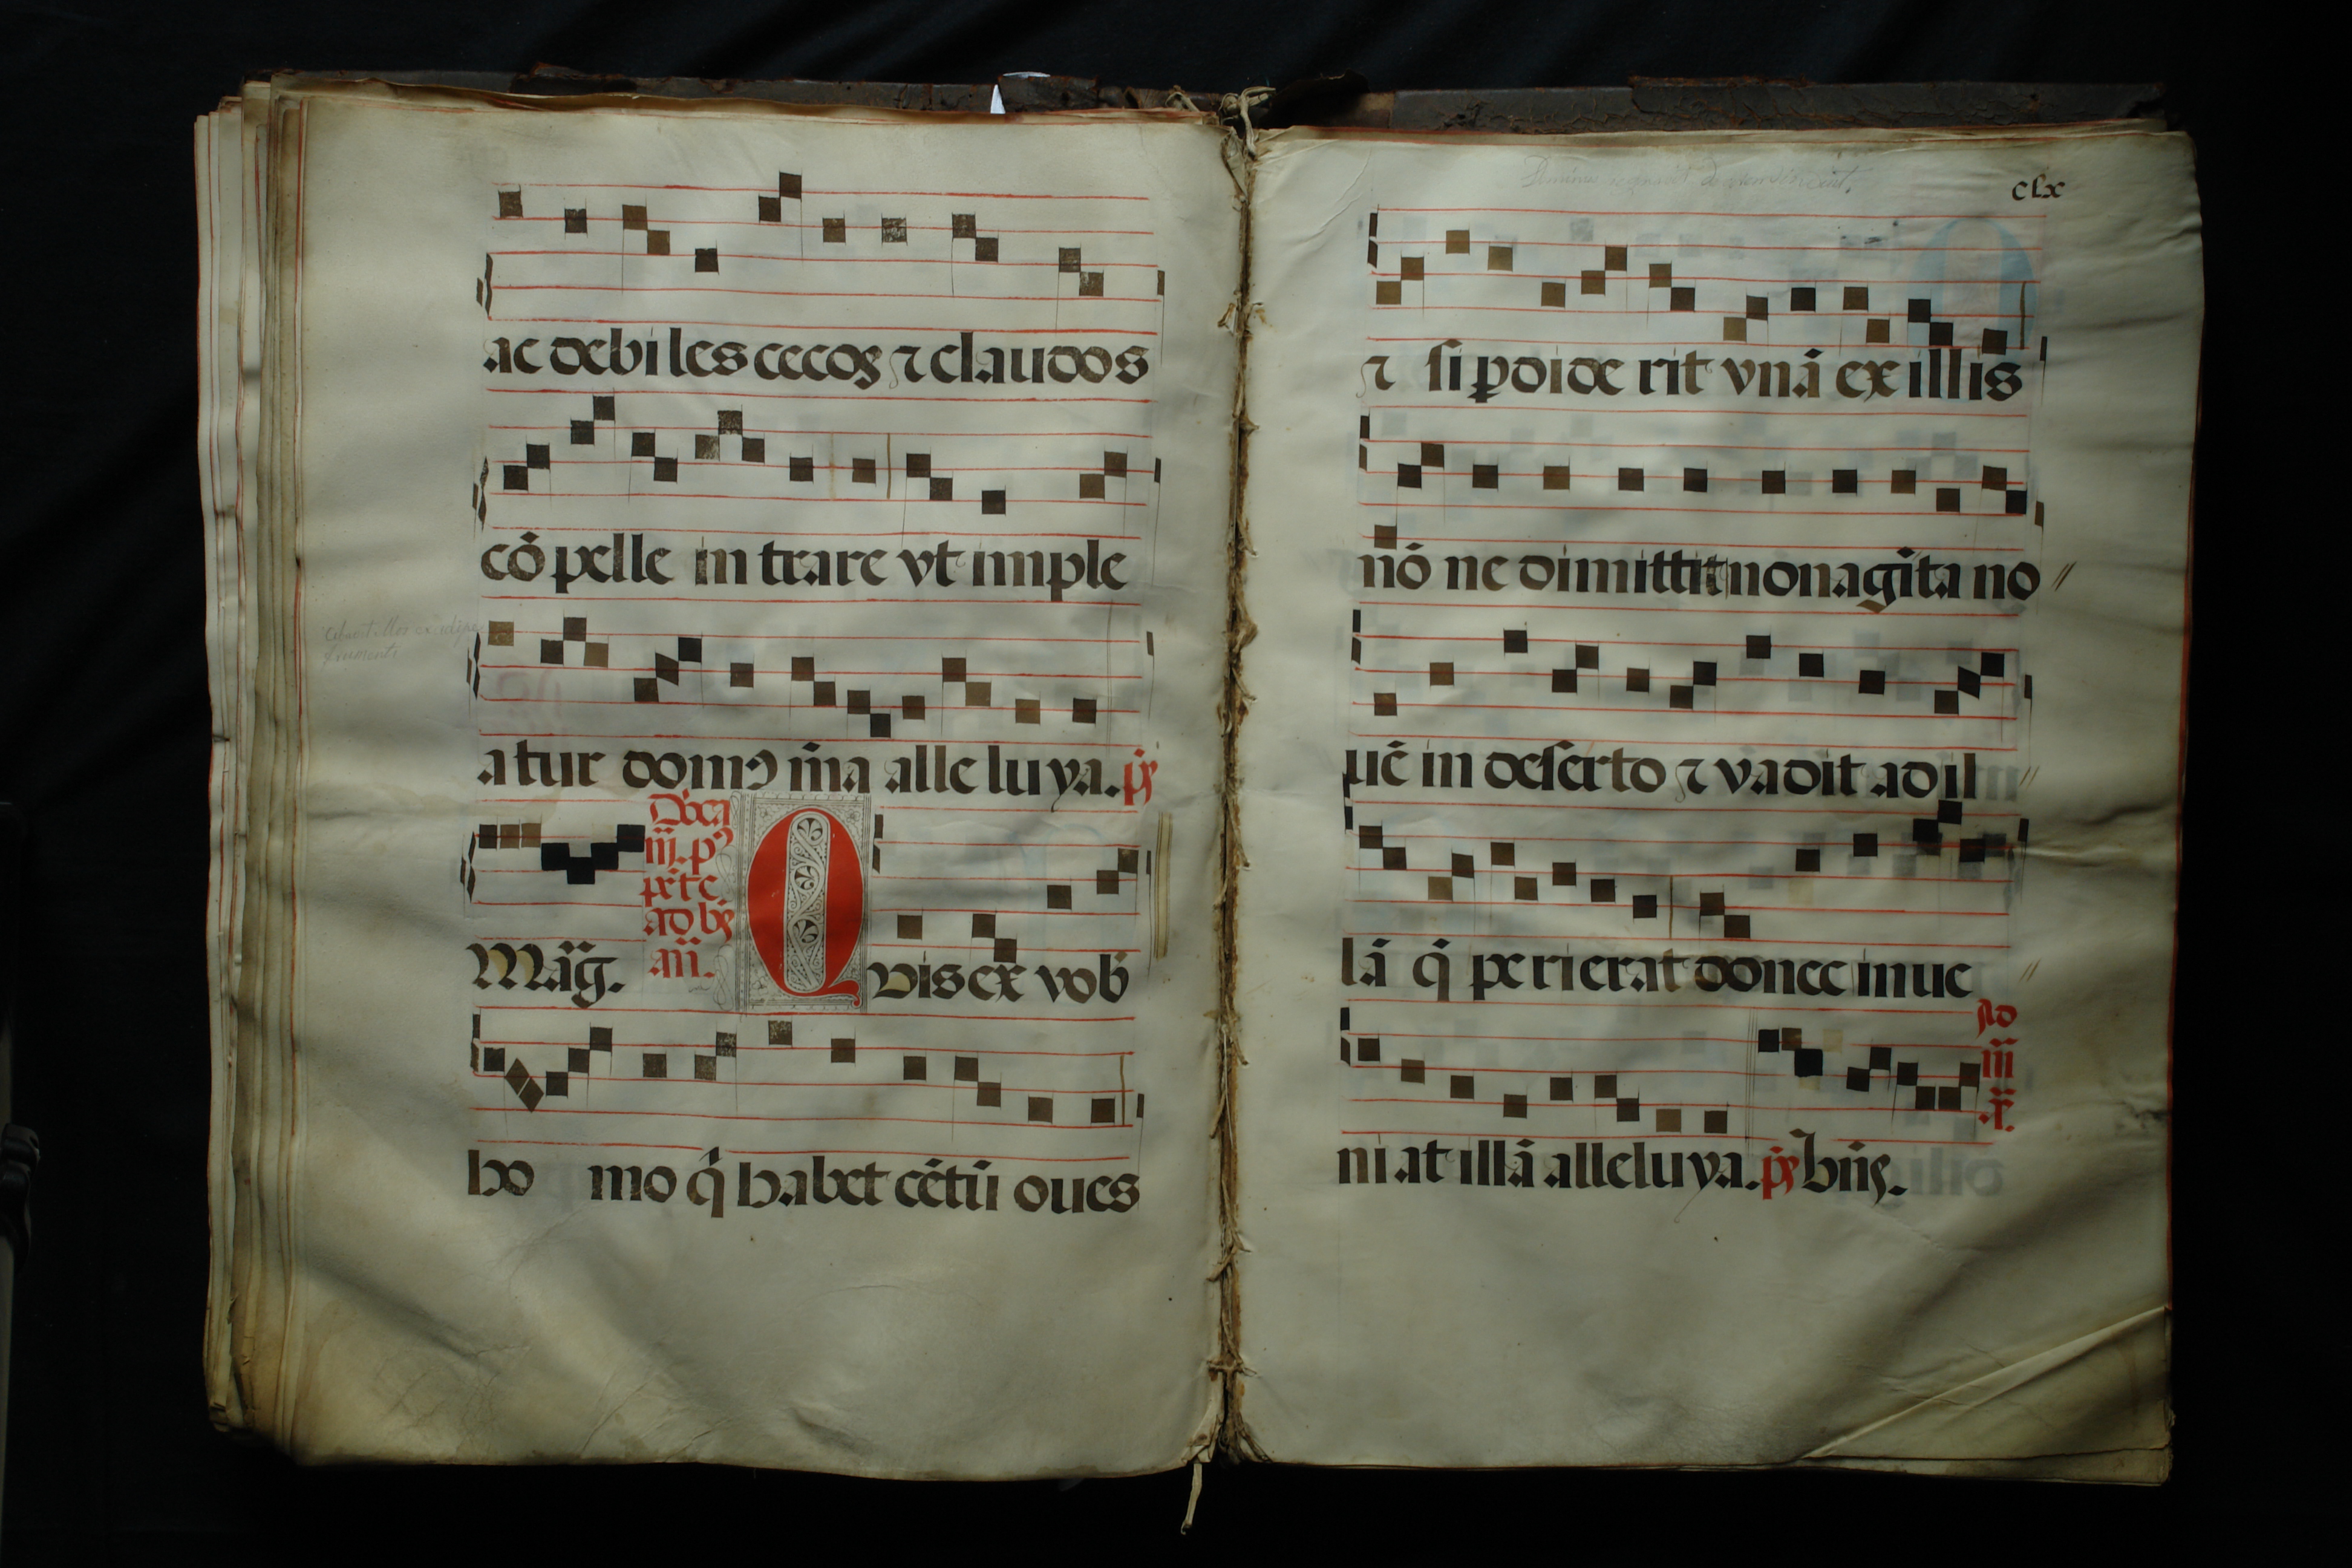 ac debiles cecos ⁊ claudos
cō pelle in trare vt imple
atur domꝰ m̄a alle lu ya. ps̄
Dōca
iij. pꝰ
pēte.
ad bn̄s
an̄.
Māg. Qvis ex vob̄
ho mo q̄ habet cētū oues
clx
⁊ si ꝑdide rit vnā ex illis
nō ne dimittit nonagīta no //
uē in deserto ⁊ vadit ad il //
lā q̄ perierat donec inue //
ni at illā alleluya. ps̄ bn̄s.
Ad
iii
.x̄.